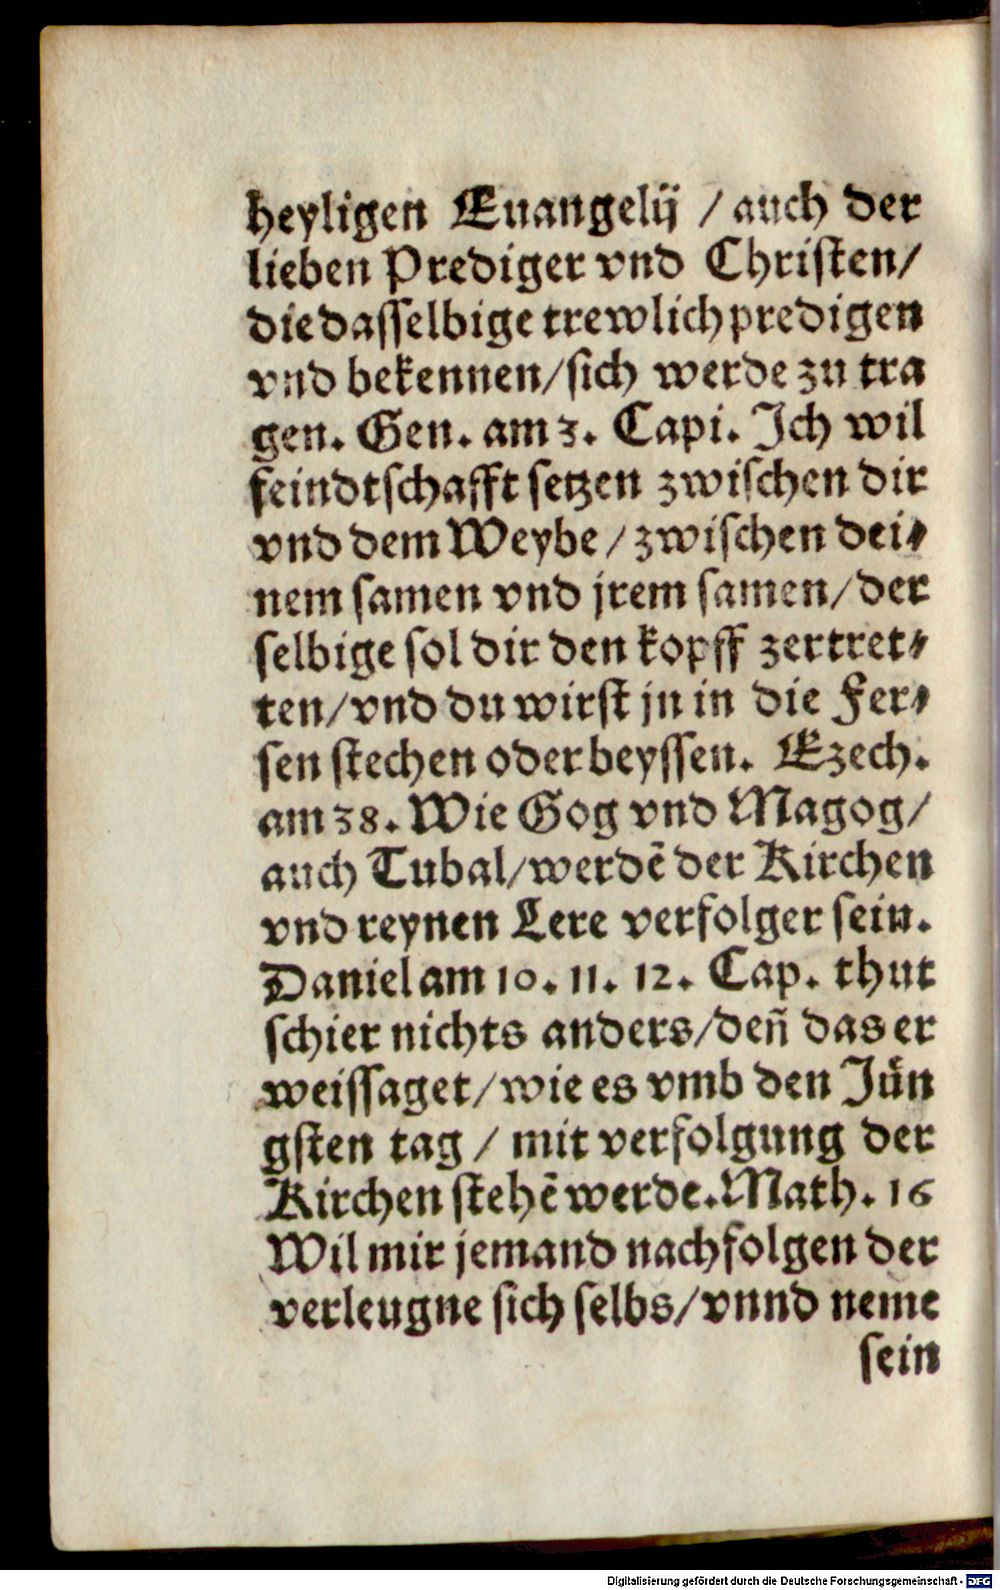 heyligen Euangelij / auch der
lieben Prediger vnd Christen/
die dasselbige trewlich predigen
vnd bekennen/sich werde zu tra
gen. Gen. am 3. Capi. Ich wil
feindtschafft setzen zwischen dir
vnd dem Weybe / zwischen dei⸗
nem samen vnd jrem samen/der
selbige sol dir den kopff zertret⸗
ten/vnd du wirst jn in die Fer⸗
sen stechen oder beyssen. Ezech.
am 38. Wie Gog vnd Magog/
auch Tubal/werdẽ der Kirchen
vnd reynen Lere verfolger sein.
Daniel am 10. 11. 12. Cap. thut
schier nichts anders/deñ das er
weissaget/wie es vmb den Jün
gsten tag / mit verfolgung der
Kirchen stehẽ werde. Math. 16
Wil mir jemand nachfolgen der
verleugne sich selbs/vnnd neme
sein
Digitalisierung gefördert durch die Deutsche Forschungsgemeinschaft - DFG